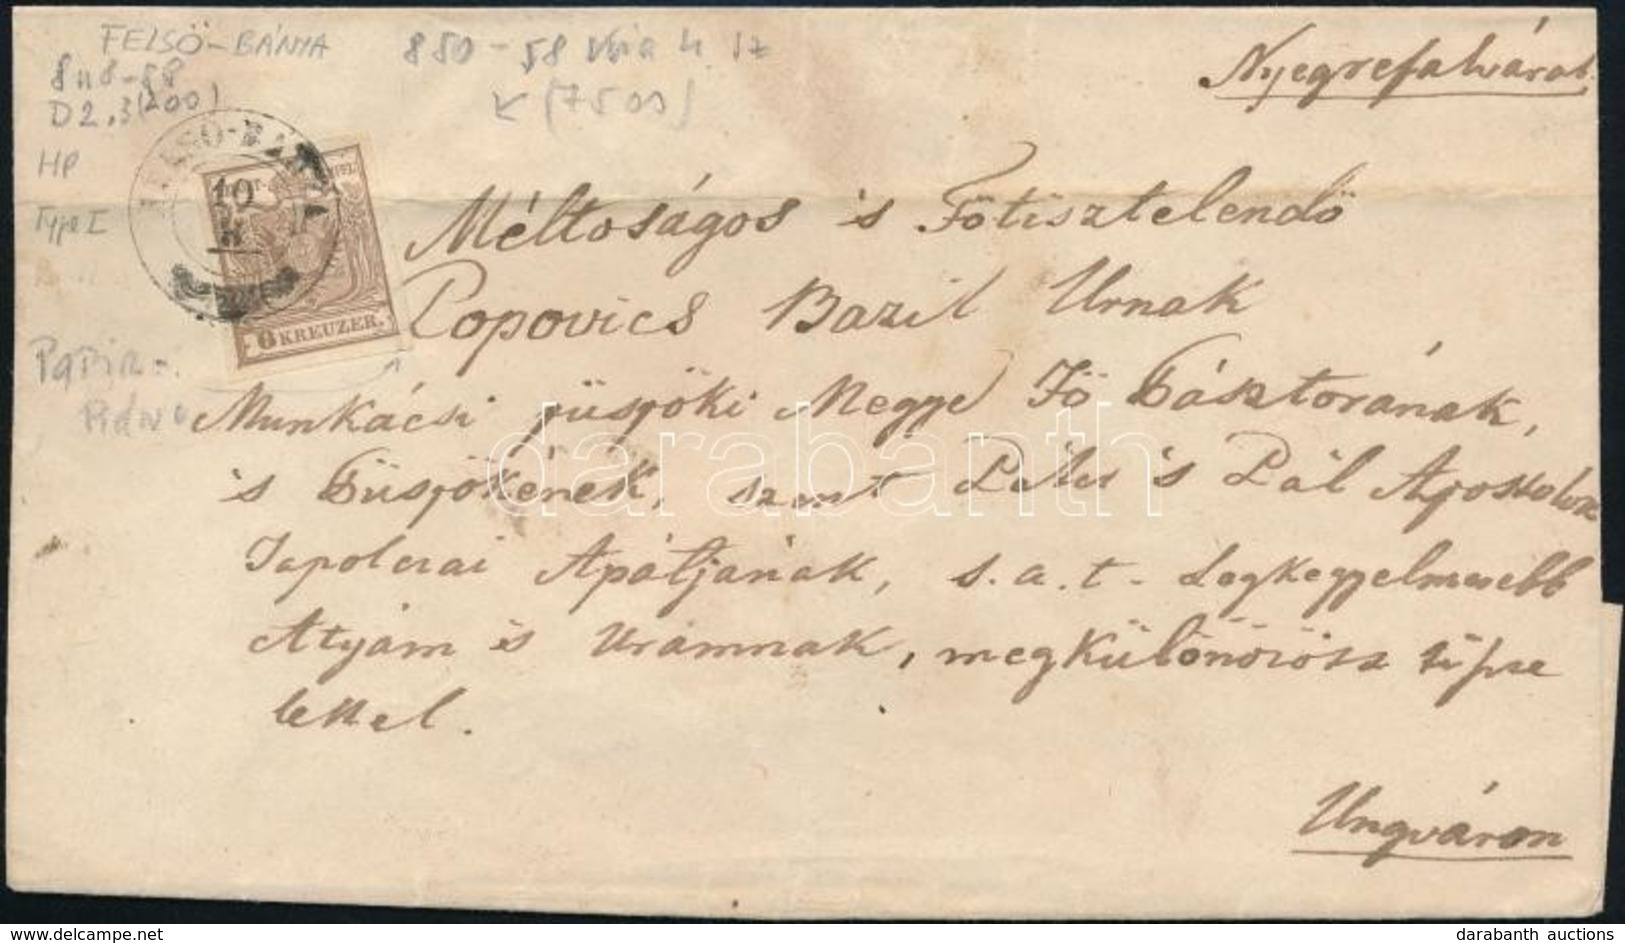 FELSŐ-BÁNYA
850-58
(7500)
D 2.3 (200)
HP
Type I
Nyegrefalvárol
FELSO-BÁNYA
10
6 KREUZER.
Méltoságos is Fötisztelendö
Popovics Bazil Urnak
Munkácsi püspöki Megye Fö Pásztorának,
is Püspökének, szent Péter is Pál Apostolok
Tapolczai Apátjának, s.a.t. Legkegyelmesebb
Atyám is Uramnak, megkülönöiösz tisz
lettel.
Ungváron
darabanth
www.delcampe.net
darabanth auctions